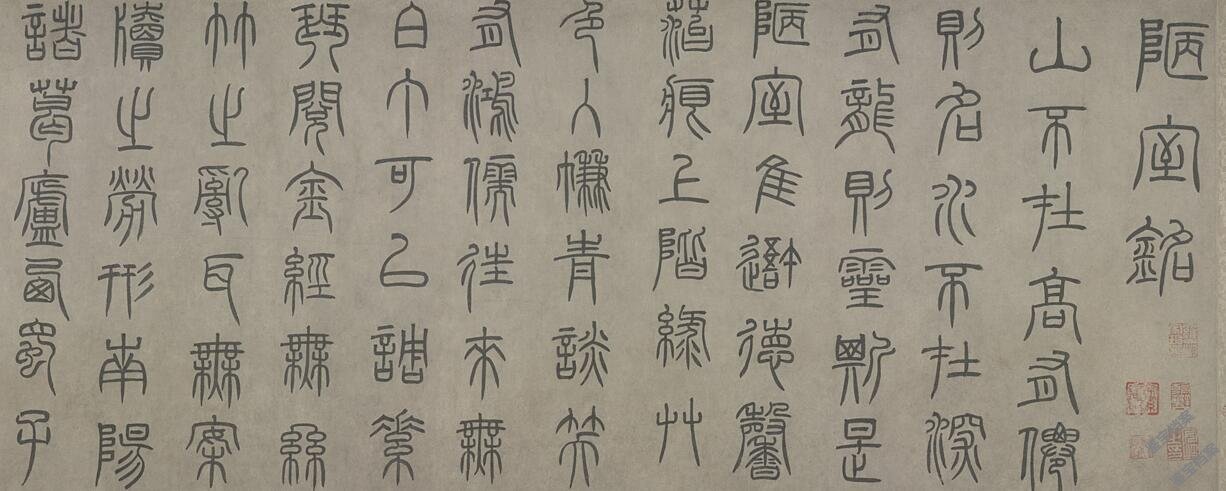 陋室銘
山不在高有僊
則名水不在深
有龍則靈斯是
陋室惟吾德馨
苔痕上階緣艸
色入簾青談笑
有鴻儒往來無
白丁可以調素
琴閱金經無絲
竹之亂耳無案
牘之勞形南陽
諸葛廬西蜀子